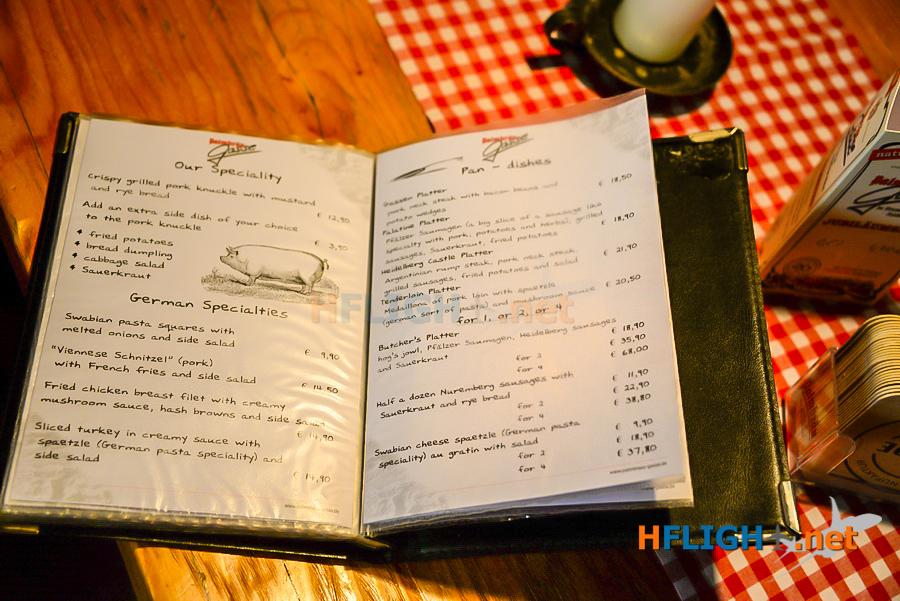 Our Speciality
Crispy grilled pork knuckle with mustard
and rye bread
€ 12,50
Add an extra side dish of your choice
to the pork knuckle
€ 3,90
* fried potatoes
* bread dumpling
* cabbage salad
* Sauerkraut
German Specialties
Swabian pasta squares with
melted onions and side salad
€ 9,90
"Viennese Schnitzel" (pork)
with French fries and side salad
€ 14,50
Fried chicken breast filet with creamy
mushroom sauce, hash browns and side salad
€ 14,90
Sliced turkey in creamy sauce with
spaetzle (German pasta speciality) and
side salad
€ 14,90
Gasse
Pan - dishes
Gassen Platter
pork neck steak with bacon beans and
potato wedges
€ 18,50
Palatine Platter
Pfälzer Saumagen (a big slice of a sausage like
specialty with pork, potatoes and herbs), grilled
sausages, Sauerkraut, fried potatoes
€ 18,90
Heidelberg Castle Platter
Argentinian rump steak, pork neck steak,
grilled sausages, fried potatoes and salad
€ 21,90
Tenderloin Platter
Medaillons of pork loin with spaetzle
(german sort of pasta) and mushroom sauce
€ 20,50
for 1, or 2, or 4
Butcher's Platter
hog's jowl, Pfälzer Saumagen, Heidelberg sausages
and Sauerkraut
€ 18,90
for 2 € 35,90
for 4 € 68,00
Half a dozen Nuremberg sausages with
Sauerkraut and rye bread
€ 11,90
for 2 € 22,90
for 4 € 38,80
Swabian cheese spaetzle (German pasta
speciality) au gratin with salad
€ 9,90
for 2 € 18,90
for 4 € 37,80
HFLIGHT.net
HFLIGHT.net